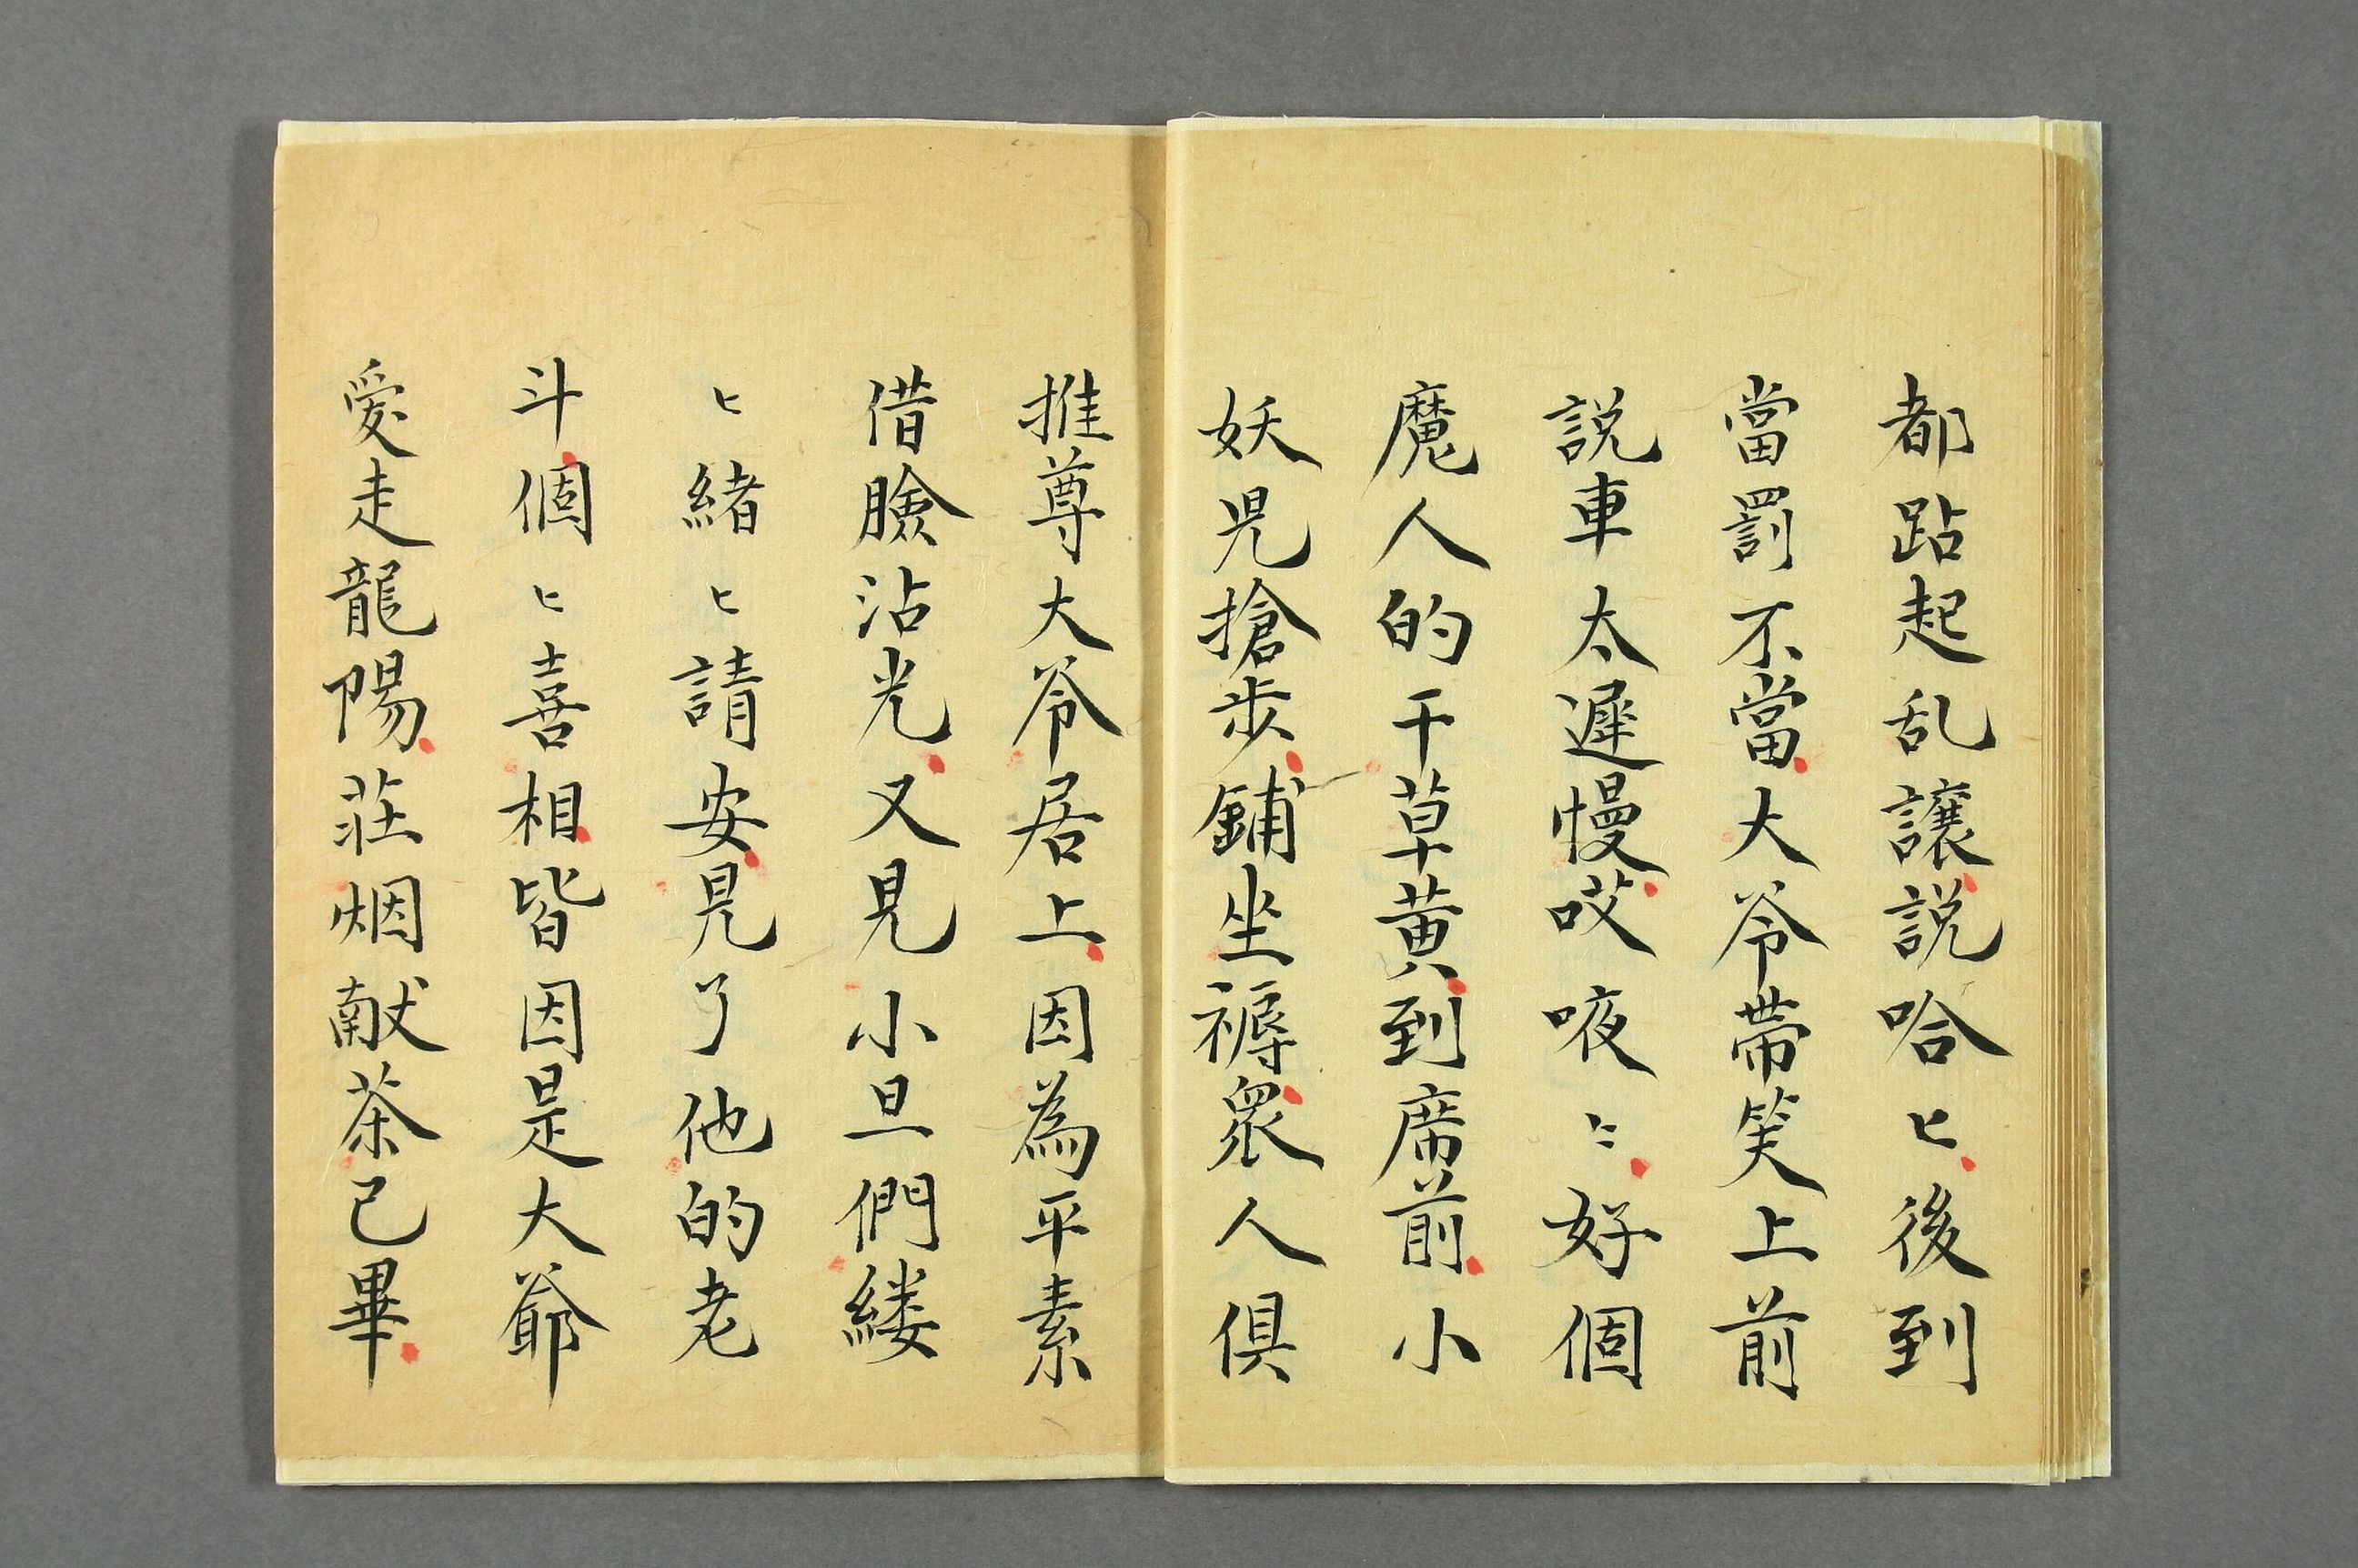 都跕起乱讓説哈〻後到
當罰不當大爷帶笑上前
説車太遲慢哎唹〻好個
魔人的干草黄到席前小
妖児搶步鋪坐褥衆人俱
推尊大爷居上因為平素
借臉沾光又見小旦們縷
〻緒〻請安見了他的老
斗個〻喜相皆因是大爺
愛走龍陽莊烟献茶已畢